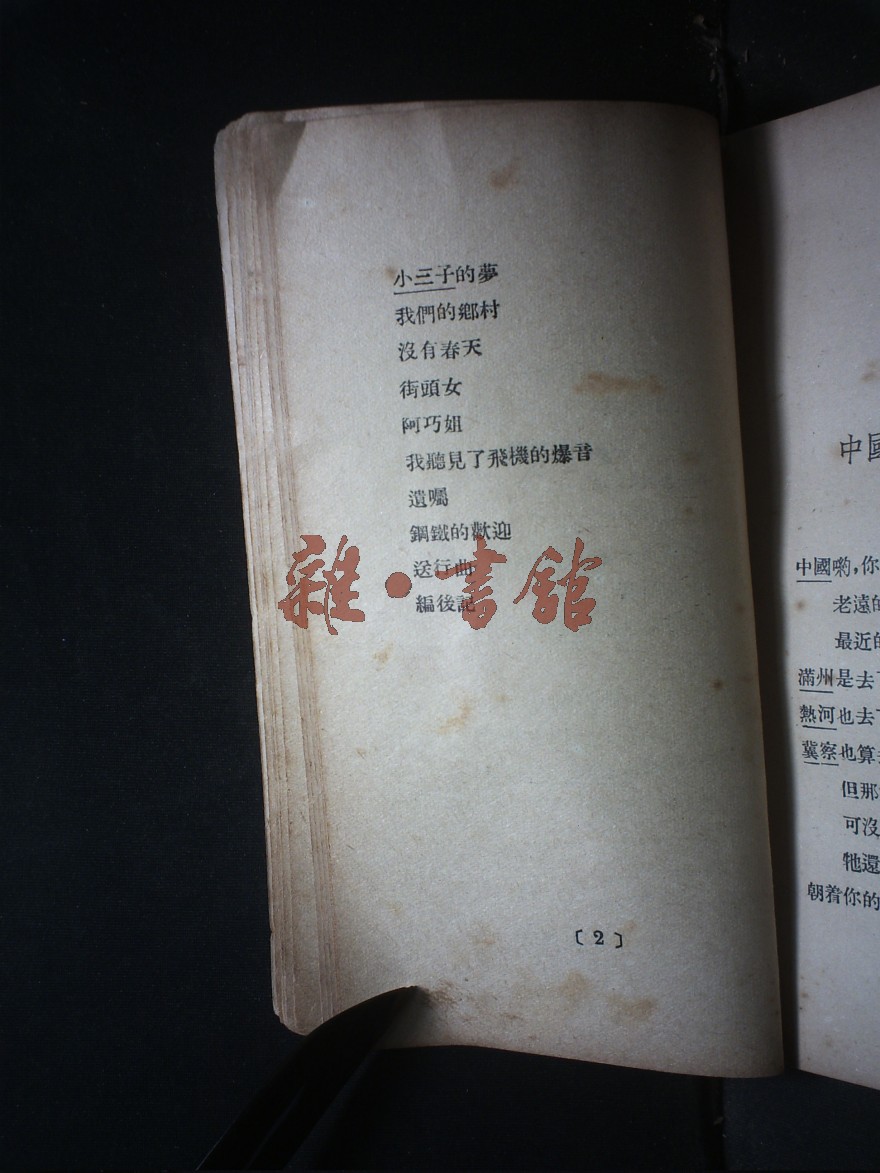 小三子的夢
我們的鄉村
沒有春天
街頭女
阿巧姐
我聽見了飛機的爆音
遺囑
鋼鐵的歡迎
送行曲
編後記
雜·書館
〔2〕
中國
中國喲，你
老遠的
最近的
滿州是去
熱河也去
冀察也算
但那
可沒
牠還
朝着你的